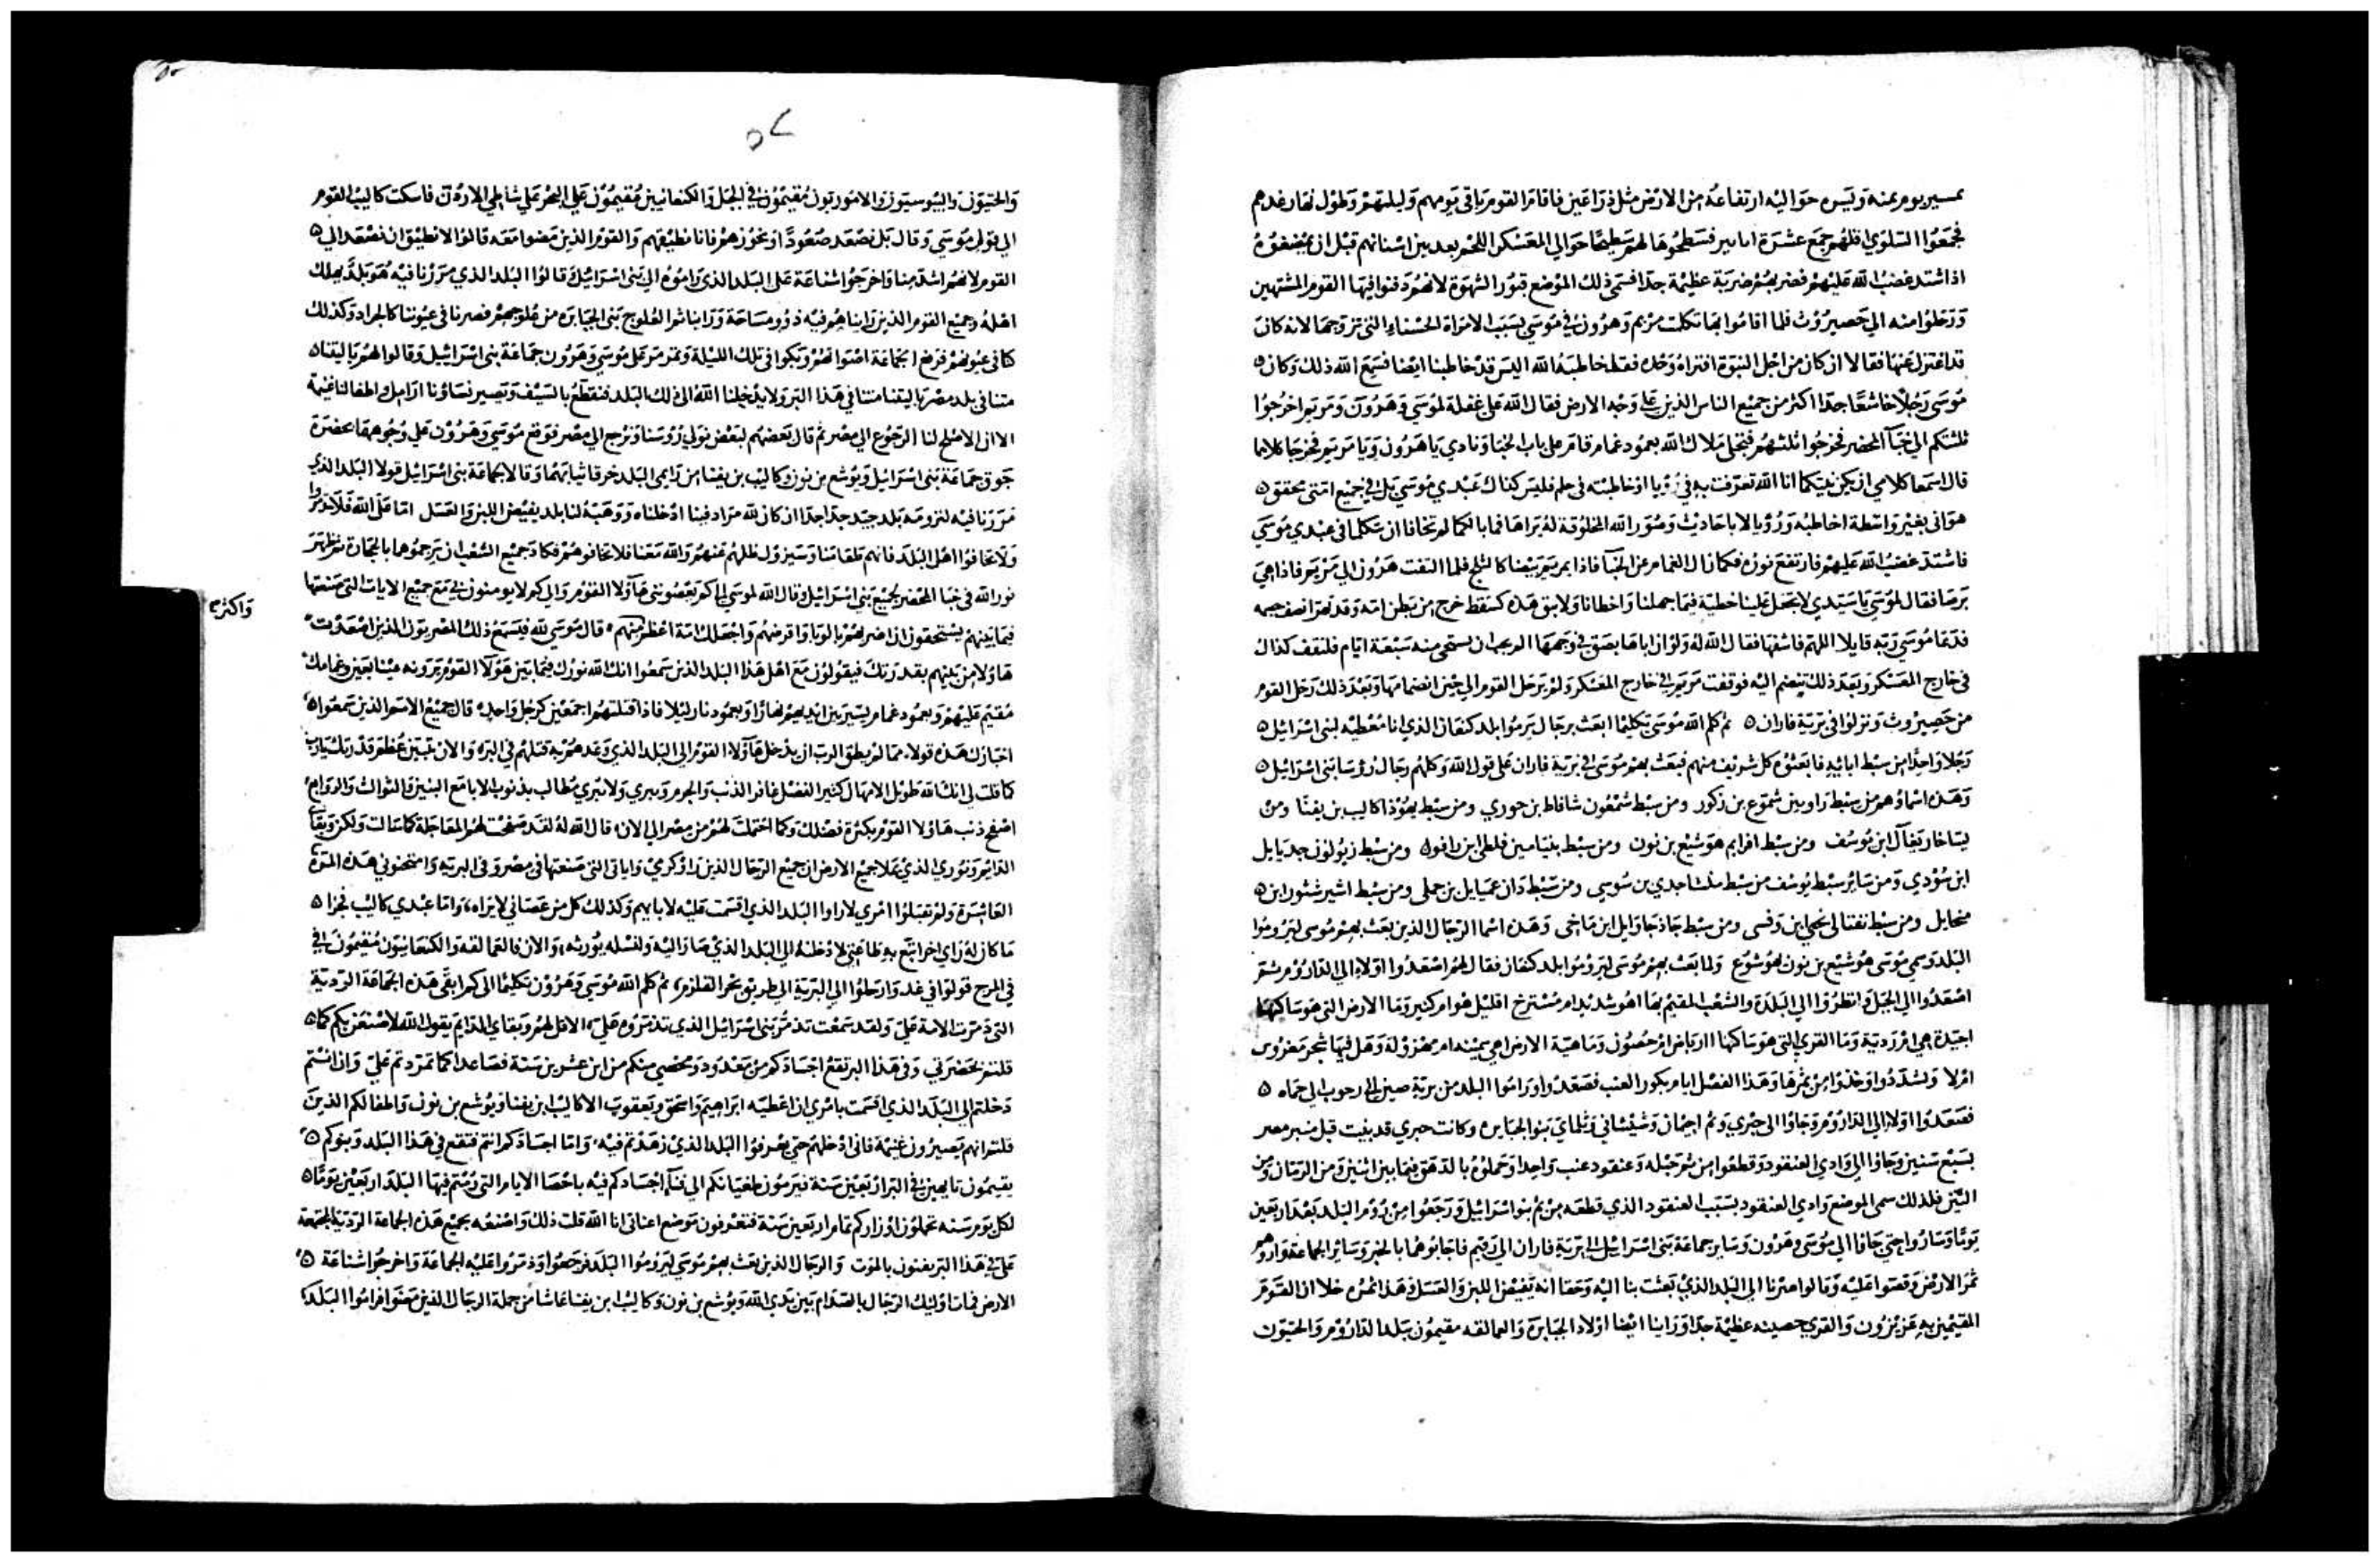 بمسير يوم يمنة ويسره حواليه ارتفاعه من الارض مثل ذراعين فاقام القوم باقى يومهم وليلتهم وطول نهار غدهم
فجمعوا السلوي اقلهم جمع عشرة ابابير فسطحوها لهم سطيحا حوالي المعسكر اللحم بعد بين اسنانهم قبل ان
اذ اشتد غضب الله عليهم فضر بهم ضربة عظيمة جدا فسمى ذلك الموضع قبور الشهوة لانهم دفنوا فيها القوم المشتهين
ورحلوا منه الي حصيروث فلما اقاموا بها تكلمت مريم وهرون في موسي بسبب الامراة الحسناء التى تزوجها لانه كان
قد اعتزل عنها فقالا ان كان من اجل النبوة افتراه وحده فقط خاطبه الله اليس قد خاطبنا ايضا فسمع الله ذلك وكان
موسى رجلا خاشعا جدا اكثر من جميع الناس الذين على وجه الارض فقال الله على غفلة لموسي وهرون ومريم اخرجوا
ثلثتكم الي خبآ المحضر فخرجوا ثلثتهم فتجلى ملاك الله بعمود غمام وقام على باب الخبا ونادي يا هرون ويا مريم فخرجا كلاهما
قال اسمعا كلامي ان يكن نبيكما انا الله تعرفت به في رؤيا او خاطبته فى حلم فليس كذاك عبدي موسي بل في جميع امتى محقق
هو اني بغير واسطة اخاطبه ورؤيا لا باحاديث وصور الله المخلوقة له يراها فما بالكما لم تخافا ان تتكلما فى عبدي موسي
فاشتد غضب الله عليهم فارتفع نوره فكما زال الغمام عن الخبآ فاذا بمريم بيضا كالثلج فلما التفت هرون الي مريم فاذا هي
برصا فقال لموسي يا سيدي لا تجعل علينا خطية فيما جهلنا واخطانا ولا تبق هذه كسقط خرج من بطن امه وقد تهرا نصف جسمه
فدعا موسي ربه قايلا اللهم فاشفها فقال الله له ولو ان اباها بصق في وجهها الم يجب ان تستحى منه سبعة ايام فلتقف كذاك
فى خارج المعسكر وبعد ذلك تنضم اليه فوقفت مريم الي خارج المعسكر ولم يرحل القوم الي حين انضمامها وبعد ذلك رحل القوم
من حصيروث ونزلوا فى برية فاران ثم كلم الله موسى تكليما ابعث برجال يرموا بلد كنعان الذي انا معطيه لبنى اسرائيل
رجلا واحدا من سبط ابائه فابعثوه كل شريف منهم فبعث بهم موسى من برية فاران على قول الله وكلهم رجال رؤسا بنى اسرائيل
وهذه اسماؤهم من سبط راوبين شموع بن زكور ومن سبط شمعون شافاط بن حوري ومن سبط يهوذا كاليب بن يفنا ومن
يساخار يغآل ابن يوسف ومن سبط افرايم هوشيع بن نون ومن سبط بنيامين فلطى ابن رافوه ومن سبط زبولون جديايل
ابن سودي ومن سائر سبط يوسف من سبط منشا جدي بن سوسي ومن سبط دان عميايل بن جملى ومن سبط اشير شثور ابن
ميخايل ومن سبط نفتالى نحبي ابن وفسى ومن سبط جاذ جاوايل ابن ماخى وهذه اسما الرجال الذين بعث بهم موسى ليروموا
البلد وسمي موسى هوشيع بن نون يهوشوع ولما بعث بهم موسى ليروموا بلد كنعان فقال لهم اصعدوا اولا الي الداروم ثم
اصعدوا الي الجبل وانظروا الي البلدة والشعب المقيم بها اهو شديد ام مسترخ اقليل هو ام كثير وما الارض التى هو ساكنها
اجيدة هي ام ردية وما القري التى هو ساكنها ارباض ام حصون وما هية الارض اهي سمينه ام مهزولة وهل فيها شجر مغروس
ام لا وتشددوا وخذوا من ثمرها وهذا الفصل ايام بكور العنب فصعدوا وراموا البلد من برية صين الي رحوب الي حماه
فصعدوا اولا الي الداروم وجاؤا الى حبري وثم اخيمان وشيشاني وثلماي بنو الجبابره وكانت حبري قد بنيت قبل مصر
بسبع سنين وجاؤا الي وادي العنقود وقطعوا من ثم حبله وعنقود عنب واحدا وحملوه بالدهق فيما بين اثنين ومن الرمان ومن
التين فلذلك سمى الموضع وادي العنقود بسبب العنقود الذي قطعه من ثم بنو اسرائيل ورجعوا من روم البلد بعد اربعين
يوما وساروا حتي جاؤا الي موسي وهرون وساير جماعة بنى اسرائيل الي برية فاران الي رقيم فاجابوهما بالخبر وساير الجماعة واروهم
ثمر الارض وقصوا عليه وقالوا صرنا الي البلد الذي بعثت بنا اليه وحقا انه يفيض اللبن والعسل وهذا ثمره خلا ان القوم
المقيمين به عزيزون والقري حصينه عظيمة جدا وراينا ايضا اولاد الجبابرة والعمالقه مقيمون ببلد الداروم والحيتيون
٥٢
والحتيون واليبوسيون والاموريون مقيمون في الجبل والكنعانيين مقيمون على البحر على شاطي الاردن فاسكت كاليب القوم
الي قول موسي وقال بل نصعد صعودا او نحوزهم فانا نطيقهم والقوم الذين مضوا معه قالوا لا نطيق ان نصعد الي
القوم لانهم اشد منا واخرجوا شناعة على البلد الذي راموه الي بنى اسرائيل وقالوا البلد الذي مررنا فيه هو بلد يهلك
اهله وجميع القوم الذين رايناهم فيه ذوو مساحة وراينا ثم العلوج بنى الجبابره من علوجهم فصرنا فى عيوننا كالجراد وكذلك
كنا فى عيونهم فرفع الجماعة اصواتهم وبكوا فى تلك الليلة وتمرمر على موسي وهرون جماعة بنى اسرائيل وقالوا لهم ياليتنا
متنا فى بلد مصر ياليتنا متنا في هذا البر ولا يدخلنا الله الى ذلك البلد فنقطع بالسيف وتصير نساؤنا ارامل واطفالنا غنيمة
الا ان الاصلح لنا الرجوع الي مصر ثم قال بعضهم لبعض نولي رؤسنا ونرجع الي مصر فوقع موسي وهرون على وجوههما بحضرة
جوق جماعة بنى اسرائيل ويوشع بن نون وكاليب بن يفنا من رايمى البلد خرقا ثيابهما وقالا لجماعة بنى اسرائيل قولا البلد الذي
مررنا فيه لنرومه بلد جيد جدا جدا ان كان لله مراد فينا ادخلناه ووهبه لنا بلد يفيض اللبن والعسل اما على الله فلا تمردوا
ولا تخافوا اهل البلد فانهم طعامنا وسيزول ظلهم عنهم والله معنا فلا تخافوهم فكاد جميع الشعب ان يرجموها بالحجارة ثم ظهر
نور الله فى خبا المحضر لجميع بنى اسرائيل وقال الله لموسي الي كم يعصونى هآولا القوم والي كم لا يومنون بي مع جميع الايات التى صنعتها
فيما بينهم يستحقون ان اضربهم بالوبا واقرضهم واجعلك امة اعظم منهم قال موسي لله فيسمع ذلك المصريون الذين اصعدت
واكثر
هاولا من بينهم بقدرتك فيقولون مع اهل هذا البلد الذين سمعوا انك الله نورك فيما بين هؤلآ القوم يرونه عينا بعين وغمامك
مقيم عليهم وبعمود غمام يسير بين ايديهم نهارا وبعمود نار ليلا فاذا قتلتهم اجمعين كرجل واحد قال جميع الامم الذين سمعوا
اخبارك هذه قولا مما لم يطق الرب ان يدخل هآولآ القوم الي البلد الذي وعدهم به قتلهم في البر والان تتبين عظم قدرتك يارب
كما قلت لي انك الله طويل الامهال كثير الفضل غافر الذنب والجرم ومبري ولا تبري مطالب بذنوب الابا مع البنين والثوالث والروابع
اصفح ذنب هاولا القوم بكثرة فضلك وكما احتملت لهم من مصر الي الان قال الله له لقد صفحت لهم المعاجلة كما سالت ولكن وبقآى
الدائم ونوري الذي علا جميع الارض ان جميع الرجال الذين راؤا كرمي واياتى التى صنعتها فى مصر وفى البريه وامتحنونى هذه المرة
العاشرة ولم تقبلوا امري لا راوا البلد الذي اقسمت عليه لابايهم وكذلك كل من عصانى لا يراه، واما عبدي كاليب فجزا
ما كان له راي اخر اتبع به طاعتى لادخلنه الي البلد الذي صار اليه ولنسله يورثه، والان فالعمالقه والكنعانيون مقيمون في
في المرج قولوا في غد وارحلوا الي البرية الي طريق بحر القلزم، ثم كلم الله موسي وهرون تكليما الى كم ابقى هذه الجماعة الردية
التى ذمرت الامة علي ولقد سمعت تذمر بنى اسرائيل الذي تذمروه علي، الا قل لهم وبقاي الدايم يقول الله لاصنعن بكم كما
قلتم بحضرتي وفى هذا البر تقع اجسادكم من معدود ومحصى منكم من ابن عشرين سنة فصاعدا كما تمردتم علي وان انتم
دخلتم الي البلد الذي اقسمت بامري ان اعطيه ابراهيم واسحق ويعقوب الا كاليب ابن يفنا ويوشع بن نون واطفالكم الذين
قلتم انهم يصيرون غنيمة فانى ادخلهم حتى يعرفوا البلد الذي زهدتم فيه، واما اجسادكم انتم فتقع في هذا البلد وبنوكم
يقيمون تايهين في البر اربعين سنة فيرمون طغيانكم الي فنآ اجسادكم فيه باحصا الايام التى رمتم فيها البلد اربعين يوما
لكل يوم سنه تحملون اوزاركم تمام اربعين سنة فتعرفون موضع اعنانى انا الله قلت ذلك واصنعه بجميع هذه الجماعة الردية المجتمعة
على في هذا البر يفنون بالموت والرجال الذين بعث بهم موسي ليروموا البلد فرجعوا وذمروا عليه الجماعة واخرجوا شناعة
الارض فمات اوليك الرجال بالصدام بين يدي الله ويوشع بن نون وكاليب ابن يفنا عاشا من جملة الرجال الذين مضوا فراموا البلد